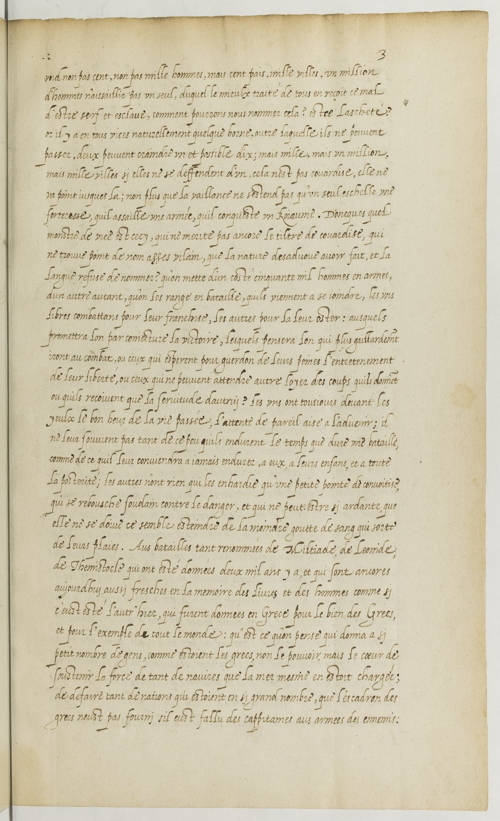 3
void non pas cent, non pas mille hommes, mais cent pais, mille villes, un million
d'hommes n'assaillir pas un seul, duquel le mieulx traité de tous en reçoit ce mal
d'estre serf et esclave, comment pourrons nous nommer cela? est ce Laschete?
or il y a en tous vices naturellement quelque borne, outre laquelle ils ne peuvent
passer, deux peuvent craindre un et possible dix; mais mille, mais un million,
mais mille villes si elles ne se deffendent d'un, cela n'est pas couardise, elle ne
va point jusques la; non plus que la vaillance ne s'estend pas qu'un seul eschelle une
forteresse, qu'il assaille une armée, qu'il conqueste un Roiaume. Doncques quel
monstre de vice est cecy, qui ne merite pas ancore le tiltre de couardise, qui
ne trouve point de nom asses vilain, que la nature desadvoue avoir fait, et la
langue refuse de nommer? qu'on mette d'un costé cinquante mil hommes en armes,
d'un autre autant, qu'on les range en bataille, qu'ils viennent a se joindre, les uns
libres combattans pour leur franchise, les autres pour la leur oster: ausquels
promettra l'on par conjecture la victoire, lesquels pensera l'on qui plus gaillardement
iront au combat, ou ceux qui esperent pour guerdon de leurs peines l'entretenement
de leur liberté, ou ceux qui ne peuvent attendre autre loyer des coups qu'ils donnent
ou qu'ils reçoivent que la servitude d'autruy? Les uns ont tousjours devant les
yeulx le bon heur de la vie passée, l'attente de pareil aise a l'advenir; il
ne leur souvient pas tant de ce peu qu'ils endurent le temps que dure une bataille,
comme de ce qu'il leur conviendra a jamais endurer, a eux, a leurs enfans, et a toute
la posterité; les autres n'ont rien qui les enhardie qu'une petite pointe de convoitise,
qui se rebousche soudain contre le danger, et qui ne peut estre si ardante que
elle ne se doive ce semble esteindre de la moindre goutte de sang qui sorte
de leurs plaies. Aus batailles tant renommées de Miltiade, de Leonide,
de Themistocle qui ont esté données deux mil ans y a, et qui sont ancores
aujourdhuy aussi fresches en la memoire des livres et des hommes comme si
c'eust esté l'autr'hier, qui furent données en Grece pour le bien des Grecs,
et pour l'exemple de tout le monde: qu'est ce qu'on pense qui donna a si
petit nombre de gens, comme estoient les grecs, non le pouvoir, mais le cœur de
soustenir la force de tant de navires que la mer mesme en estoit chargée;
de defaire tant de nations qui estoient en si grand nombre, que l'escadron des
grecs n'eust pas fourni s'il eust fallu des cappitaines aus armées des ennemis: